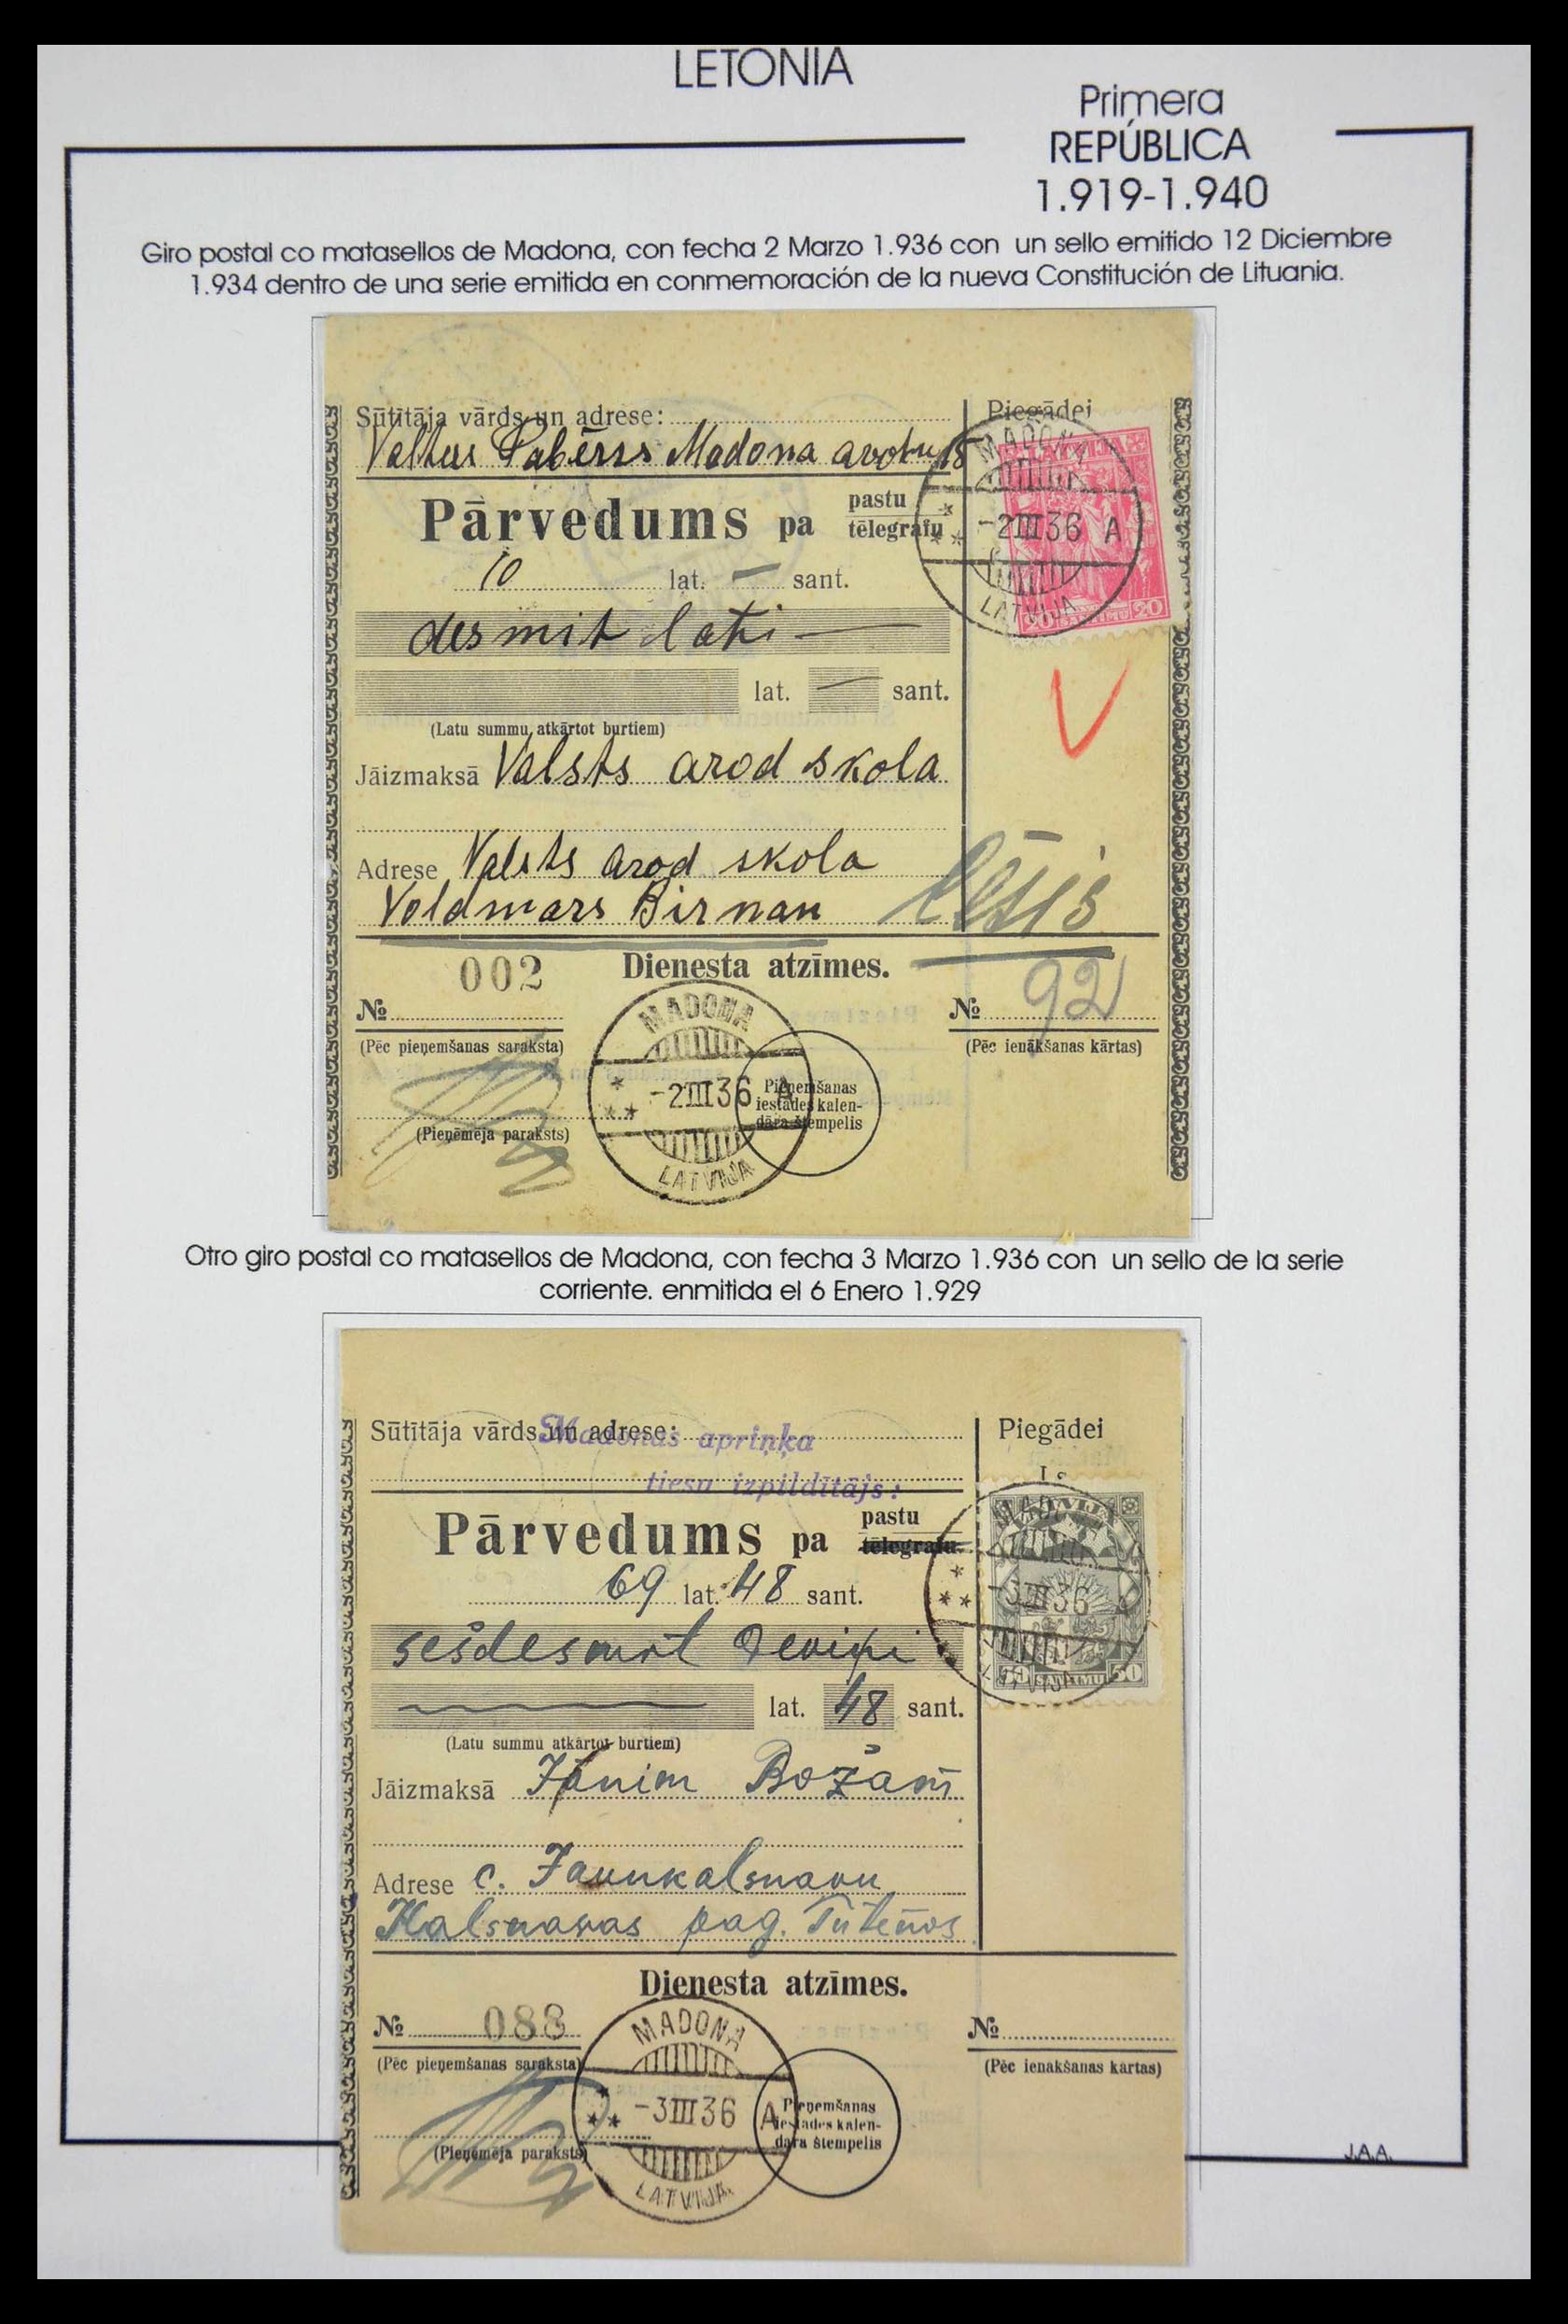 LETONIA
Primera
REPÚBLICA
1.919-1.940
Giro postal co matasellos de Madona, con fecha 2 Marzo 1.936 con un sello emitido 12 Diciembre
1.934 dentro de una serie emitida en conmemoración de la nueva Constitución de Lituania.
Sūtītāja vārds un adrese:
Piegādei
Madona avotu 15
MADONA
LATVIJA
Pārvedums pa pastu
tēlegrafu
-2III36 A
10 lat. — sant.
LATVIJA
20 SANTIMU 20
desmit lati —
lat. — sant.
(Latu summu atkārtot burtiem)
Jāizmaksā Valsts arod skola
Adrese Valsts arod skola
Voldmars Birnan Cēsis
002
Dienesta atzīmes.
№
№ 92
(Pēc pieņemšanas saraksta)
(Pēc ienākšanas kārtas)
MADONA
-2III36 A
LATVIJA
Pieņemšanas
iestādes kalen-
dāra štempelis
(Pieņēmēja paraksts)
Otro giro postal co matasellos de Madona, con fecha 3 Marzo 1.936 con un sello de la serie
corriente. enmitida el 6 Enero 1.929
Sūtītāja vārds un adrese:
Madonas apriņķa
Piegādei
tiesu izpildītājs:
Pārvedums pa pastu
tēlegrafu
MADONA
LATVIJA
-3III36
69 lat. 48 sant.
sešdesmit deviņi
LATVIJA
50 SANTIMU 50
lat. 48 sant.
(Latu summu atkārtot burtiem)
Jāizmaksā Jānim Božam
Adrese c. Jaunkalsnavu
Kalsnavas pag.
Dienesta atzīmes.
№ 088
№
(Pēc pieņemšanas saraksta)
(Pēc ienākšanas kārtas)
MADONA
-3III36 A
LATVIJA
Pieņemšanas
iestādes kalen-
dāra štempelis
(Pieņēmēja paraksts)
J.A.A.